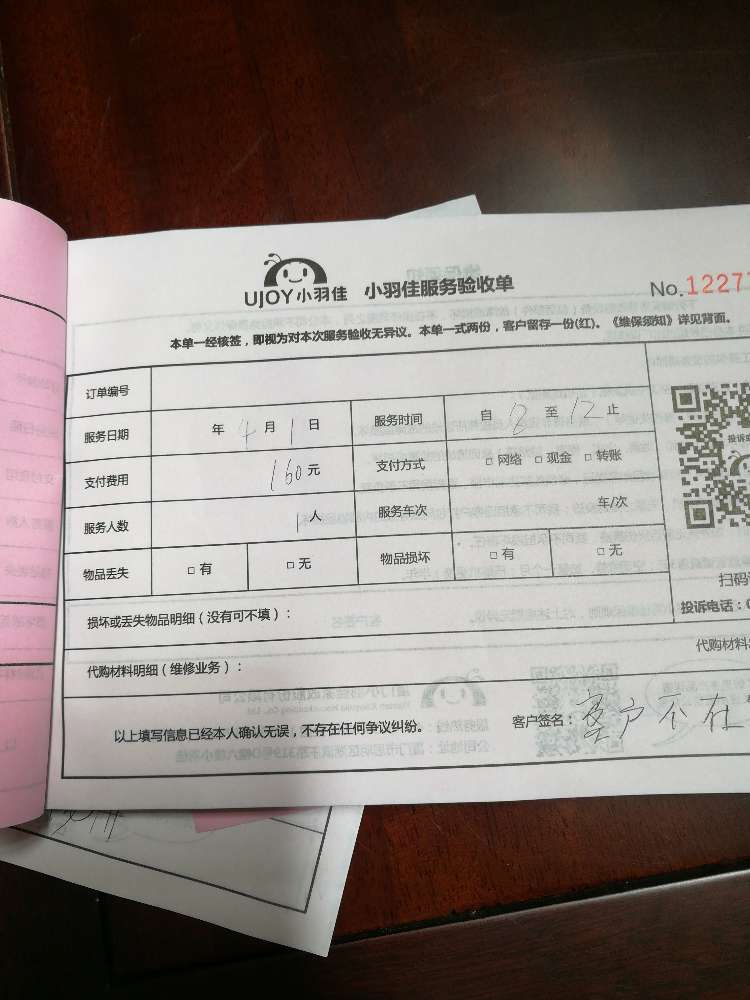 UJOY小羽佳 小羽佳服务验收单 No.12277
本单一经核签，即视为对本次服务验收无异议。本单一式两份，客户留存一份(红)。《维保须知》详见背面。
订单编号
服务日期 年 4 月 1 日 服务时间 自 8 至 12 止
支付费用 160 元 支付方式 □ 网络 □ 现金 □ 转账
服务人数 1 人 服务车次 年/次
物品丢失 □ 有 □ 无 物品损坏 □ 有 □ 无
扫码
损坏或丢失物品明细（没有可不填）： 投诉电话：0
代购材料
代购材料明细（维修业务）：
以上填写信息已经本人确认无误，不存在任何争议纠纷。 客户签名： 客户不在